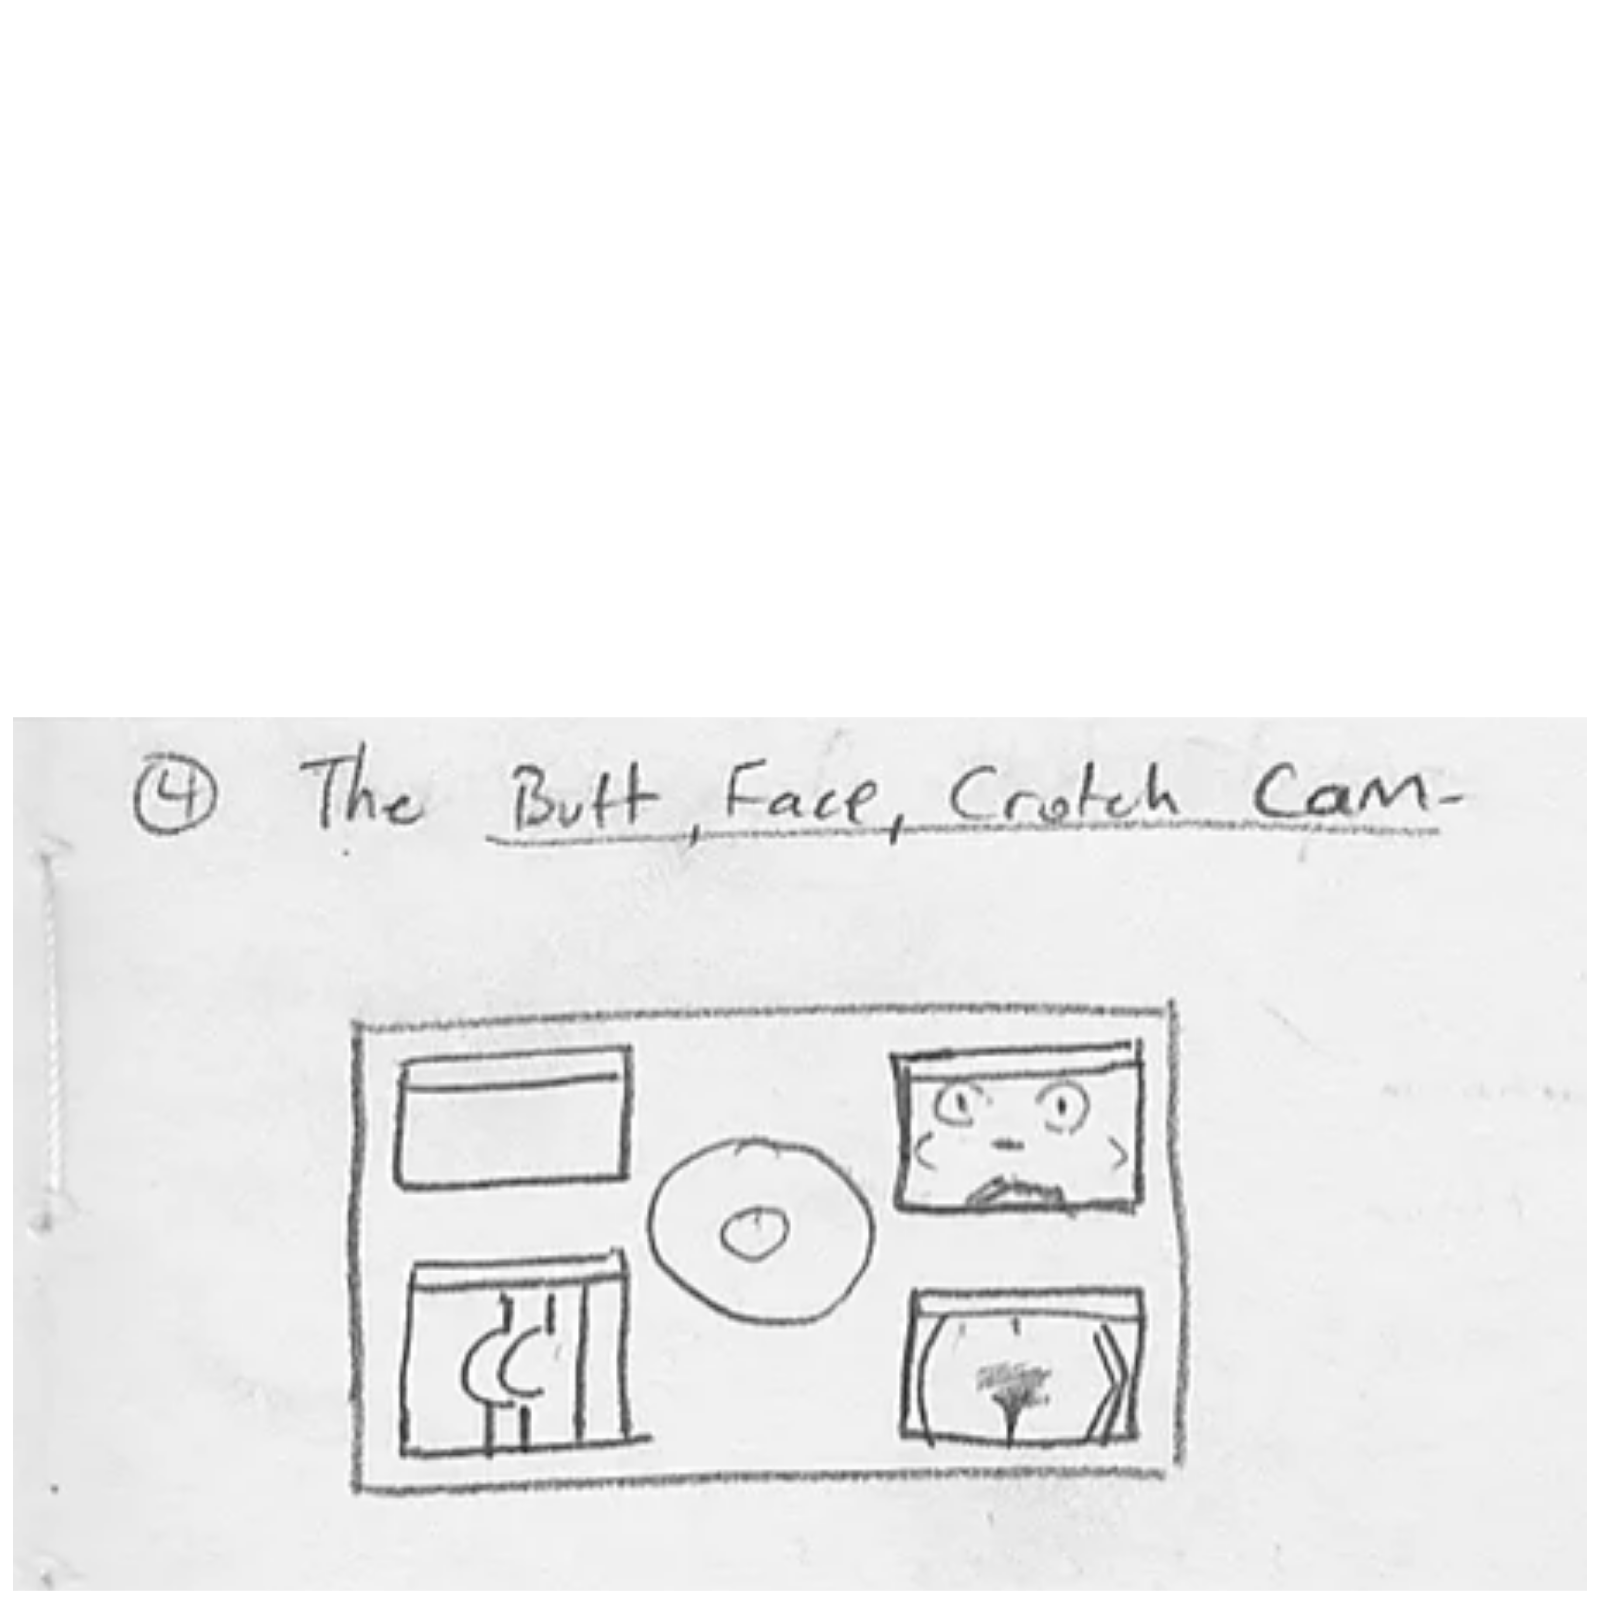 ④ The Butt, Face, Crotch Cam-